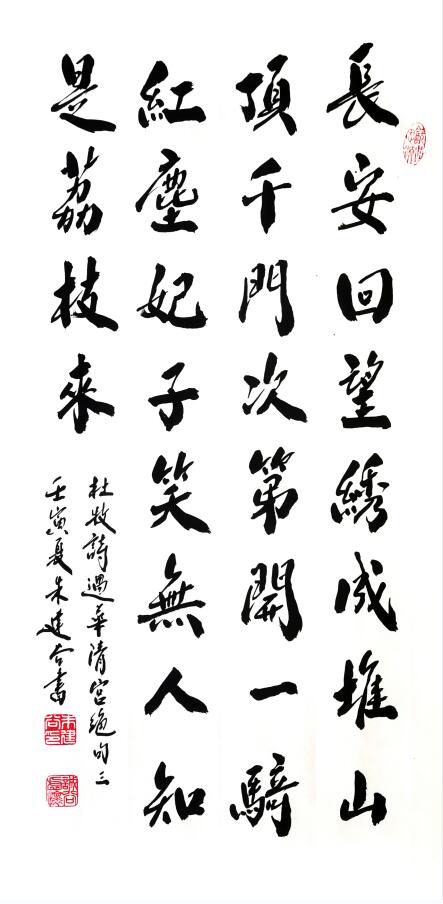 長安回望綉成堆山
頂千門次第開一騎
紅塵妃子笑無人知
是荔枝來
杜牧詩過華清宫絶句三
壬寅夏朱建合書